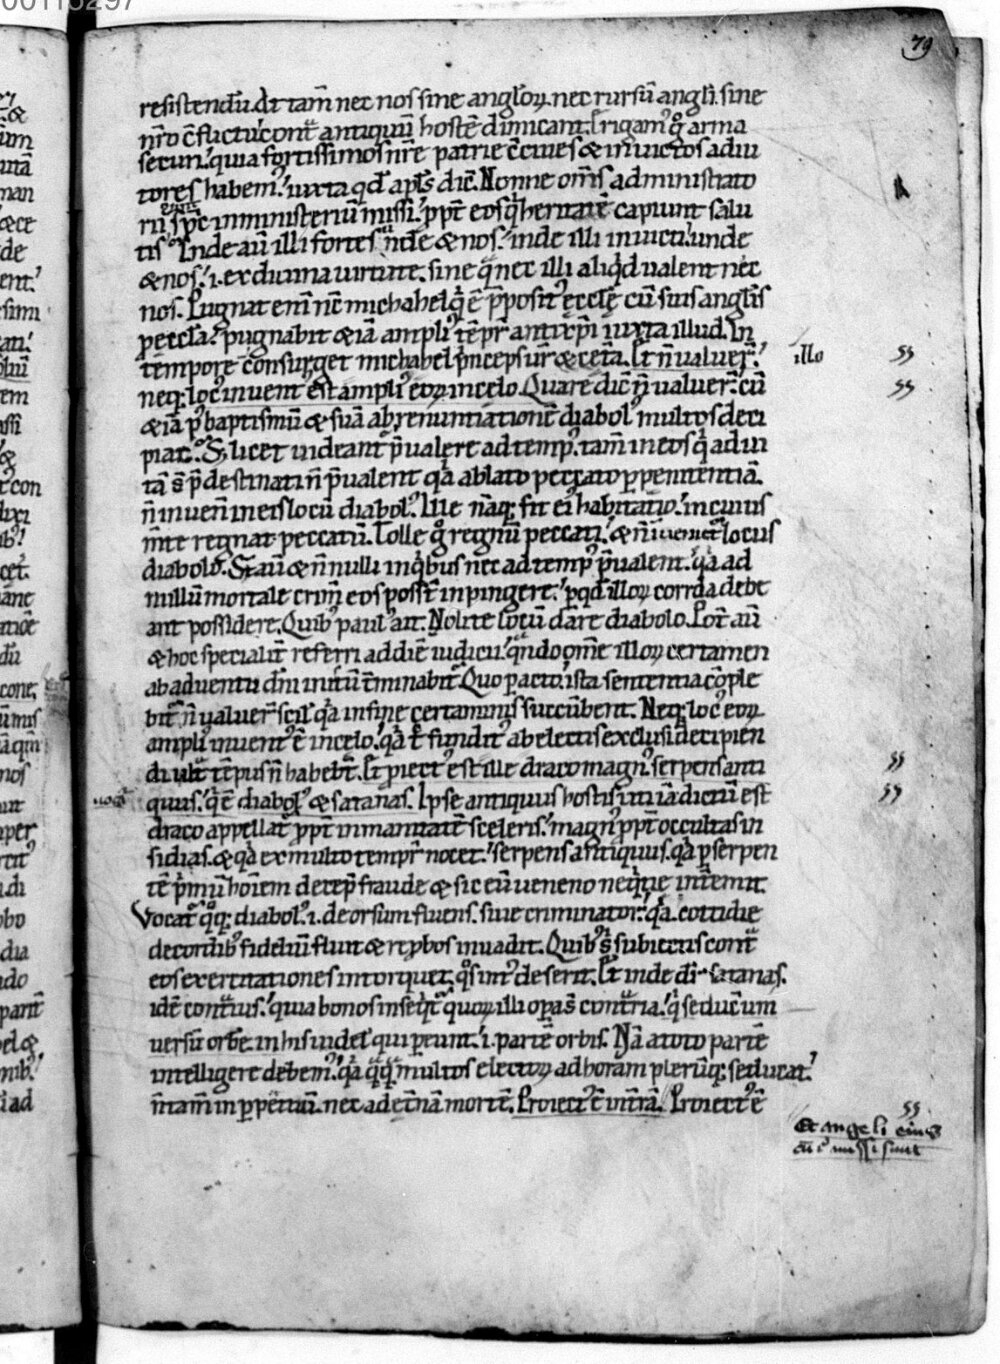 79
resistendū. At tam̄ nec nos sine angloꝝ. nec rursū angli sine
nr̄o c̄flictu cont̄ antiquū hostē dimicant. Erigam᷒ g̊ arma
securi. quia fortissimos nr̄e patrie c̄ciues & inuictos adiu
tores habem᷒. iuxta qd̄ apl̄s dic̄. Nonne om̄s administrato
rii sp̄c in ministeriū missi. ꝓpt̄ eos q̄ heritatē capiunt salu
tis. Inde aū illi fortes unde & nos. inde illi inuicti. unde
& nos. i. ex diuina uirtute. sine q̄ nec illi aliqd ualent nec
nos. Pugnat enī nc̄ michahel q̄ ē p̄posit᷒ eccl̄ę cū suis anglis
p eccl̄a. pugnabit & iā ampli᷒ tēpr̄ antixp̄i iuxta illud. In
tempore consurget michahel p̄nceps ur̄ & cetā. Et n̄ ualuer̄. illo
neq; loc᷒ inuent᷒ est ampli᷒ eoꝝ in celo. Quare dic̄ n̄ ualuer̄. cū
& iā p᷒ baptismū & suā abrenuntiationē diabol᷒ multos deci
piat. S; licet uideant᷒ p̄ualere ad temp᷒. tam̄ in eos q̄ ad ui
tā s̄ p̄destinati n̄ p̄ualent. qa ablato peccato p penitentiā
n̄ inuen̄ in eis locū diabol᷒. Ille nāq; fit ei᷒ habitatio. in cuius
m̄te regnat peccatū. Tolle g̊ regnū peccati. & n̄ inueniet᷒ locus
diabolo. St aū & n̄nulli in qbus nec ad temp᷒ p̄ualent. qa ad
nullū mortale crim̄ eos poss̄t inpingere. p qd̄ illoꝝ corda debe
ant possidere. Quib᷒ paul᷒ ait. Nolite locū dare diabolo. Pot̄ aū
& hoc specialit̄ referri ad diē iudicii. qn̄do om̄e illoꝝ certamen
ab aduentu dn̄i initū t̄minabit᷒. Quo pacto. ista sententia cōple
bit᷒ n̄ ualuer̄ scil; qa in fine certaminis succūbent. Neq; loc᷒ eoꝝ
ampli᷒ inuent᷒ ē in celo. qa t̄ fundit᷒ ab electis exclusi decipien
di ult᷒ tēpus n̄ habebt̄. Et piect᷒ est ille draco magn᷒ serpens anti
quus. q ē diabol᷒ & satanas. Ipse antiquus hostis uti iā dictū est
draco appellat᷒ ꝓpt̄ inmanitatē sceleris. magn᷒ ꝓpt̄ occultas in
sidias. & qa ex multo tempr̄ nocet. serpens antiquus. qa p serpen
tē p̄mū hōiem decep̄ fraude & sic eū ueneno neqtie int̄emit.
Vocat᷒ qq; diabol᷒. i. deorsum fluens. siue criminator. qa cottidie
de cordib᷒ fideliū fluit & rep̄bos inuadit. Quib᷒ s̄ subiectus cont̄
eos exercitationes intorquet. qs int᷒ deserit. Et inde dr̄ satanas.
idē contrius. quia bonos inseqt᷒ quoꝝ illi opa s̄ contria. q seduc̄ um
uersū orbē. in his uidel; qui pereunt. i. partē orbis. Nā a toto partē
intelligere debem᷒. qa qq̄ multos electoꝝ ad horam pleruq; seducat.
n̄ tam̄ in ppetuū. nec ad et̄nā mortē. Proiect᷒ ē in trā. Proiect᷒ ē
Et angeli eius
cū eo missi sunt